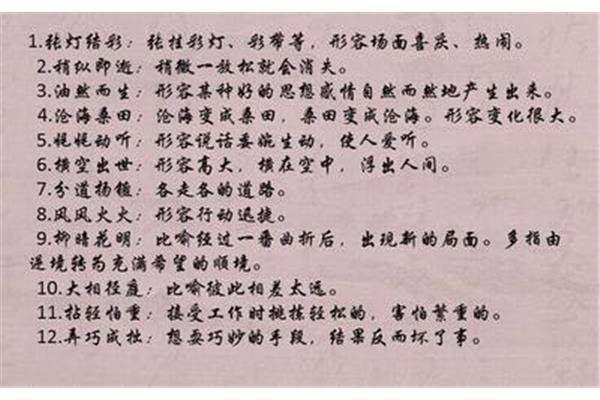 1.张灯结彩：张挂彩灯、彩带等，形容场面喜庆、热闹。
2.稍纵即逝：稍微一放松就会消失。
3.油然而生：形容某种好的思想感情自然而然地产生出来。
4.沧海桑田：沧海变成桑田，桑田变成沧海。形容变化很大。
5.娓娓动听：形容说话委婉生动，使人爱听。
6.横空出世：形容高大，横在空中，浮出人间。
7.分道扬镳：各走各的道路。
8.风风火火：形容行动迅捷。
9.柳暗花明：比喻经过一番曲折后，出现新的局面。多指由
逆境转为充满希望的顺境。
10.大相径庭：比喻彼此相差太远。
11.拈轻怕重：接受工作时挑拣轻松的，害怕繁重的。
12.弄巧成拙：想耍巧妙的手段，结果反而坏了事。